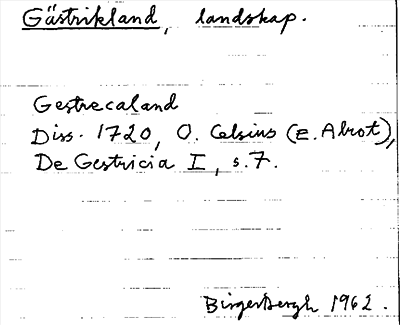 Gästrikland, landskap.
Gestrecaland
Diss. 1720, O. Celsius (E. Alrot),
De Gestricia I, s. 7.
Birger Bergh 1962.